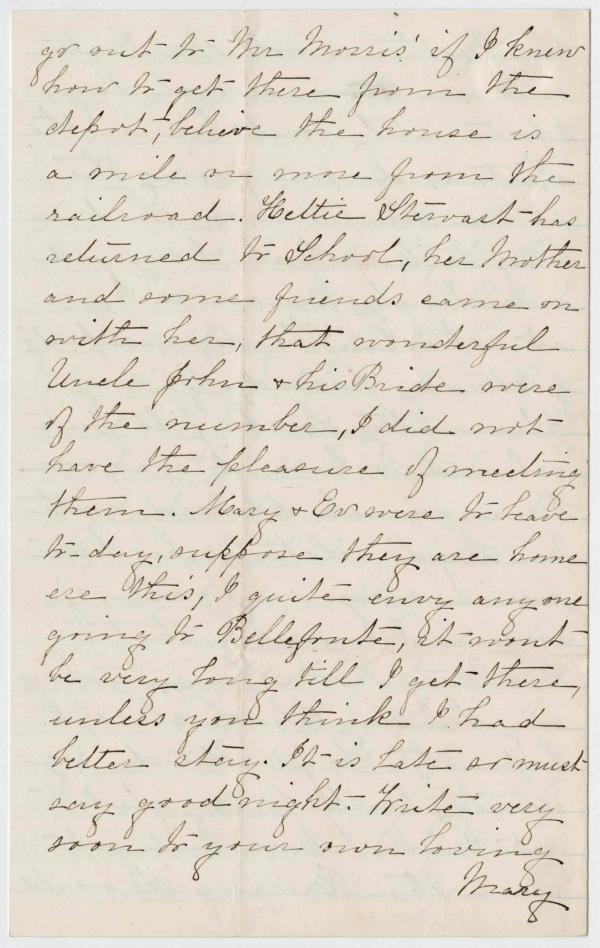 go out to Mr Morris' if I knew
how to get there from the
depot, believe the house is
a mile or more from the
railroad. Hettie Stewart has
returned to School, her Mother
and some friends came on
with her, that wonderful
Uncle John & his Bride were
of the number, I did not
have the pleasure of meeting
them. Mary & Ev were to leave
to-day, suppose they are home
ere this, I quite envy anyone
going to Bellefonte, it wont
be very long till I get there,
unless you think I had
better stay. It is late so must
say good night. Write very
soon to your own loving
Mary